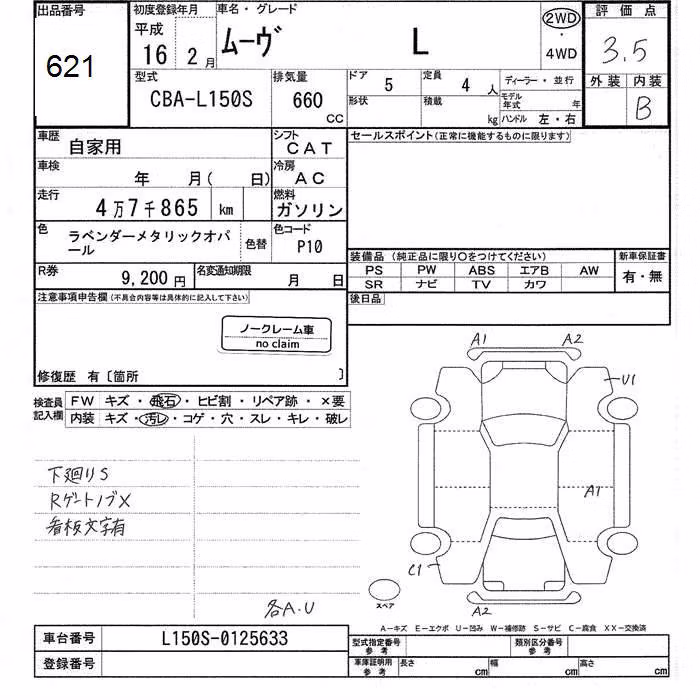 出品番号 初度登録年月 車名・グレード 2WD 評価点
621 平成 16 2月 ムーヴ L ・ 4WD 3.5
型式 排気量 ドア 5 定員 4人 ディーラー・並行 外装 内装
CBA-L150S 660 CC 形状 積載 kg モデル年式 年 ハンドル 左・右 B
車歴 自家用 シフト CAT セールスポイント(正常に機能するものに限ります)
車検 年 月( 日) 冷房 AC
走行 4万7千865 km 燃料 ガソリン
色 ラベンダーメタリックオパール 色替 色コード P10
装備品 (純正品に限り○をつけてください) 新車保証書
PS PW ABS エアB AW 有・無
SR ナビ TV カワ
R券 9,200円 名変通知期限 月 日
後日品
注意事項申告欄(不具合内容等は具体的に記入して下さい)
ノークレーム車
no claim
修復歴 有〔箇所 〕
検査員記入欄 FW キズ・飛石・ヒビ割・リペア跡・×要
内装 キズ・汚レ・コゲ・穴・スレ・キレ・破レ
A1 A2
U1
A1
C1
A2
下廻りS
RゲートノブX
看板文字有
各A.U
スペア
A-キズ E-エクボ U-凹み W-補修跡 S-サビ C-腐食 XX-交換済
車台番号 L150S-0125633 型式指定番号 参考 類別区分番号 参考
登録番号 車庫証明用 参考 長さ cm 幅 cm 高さ cm